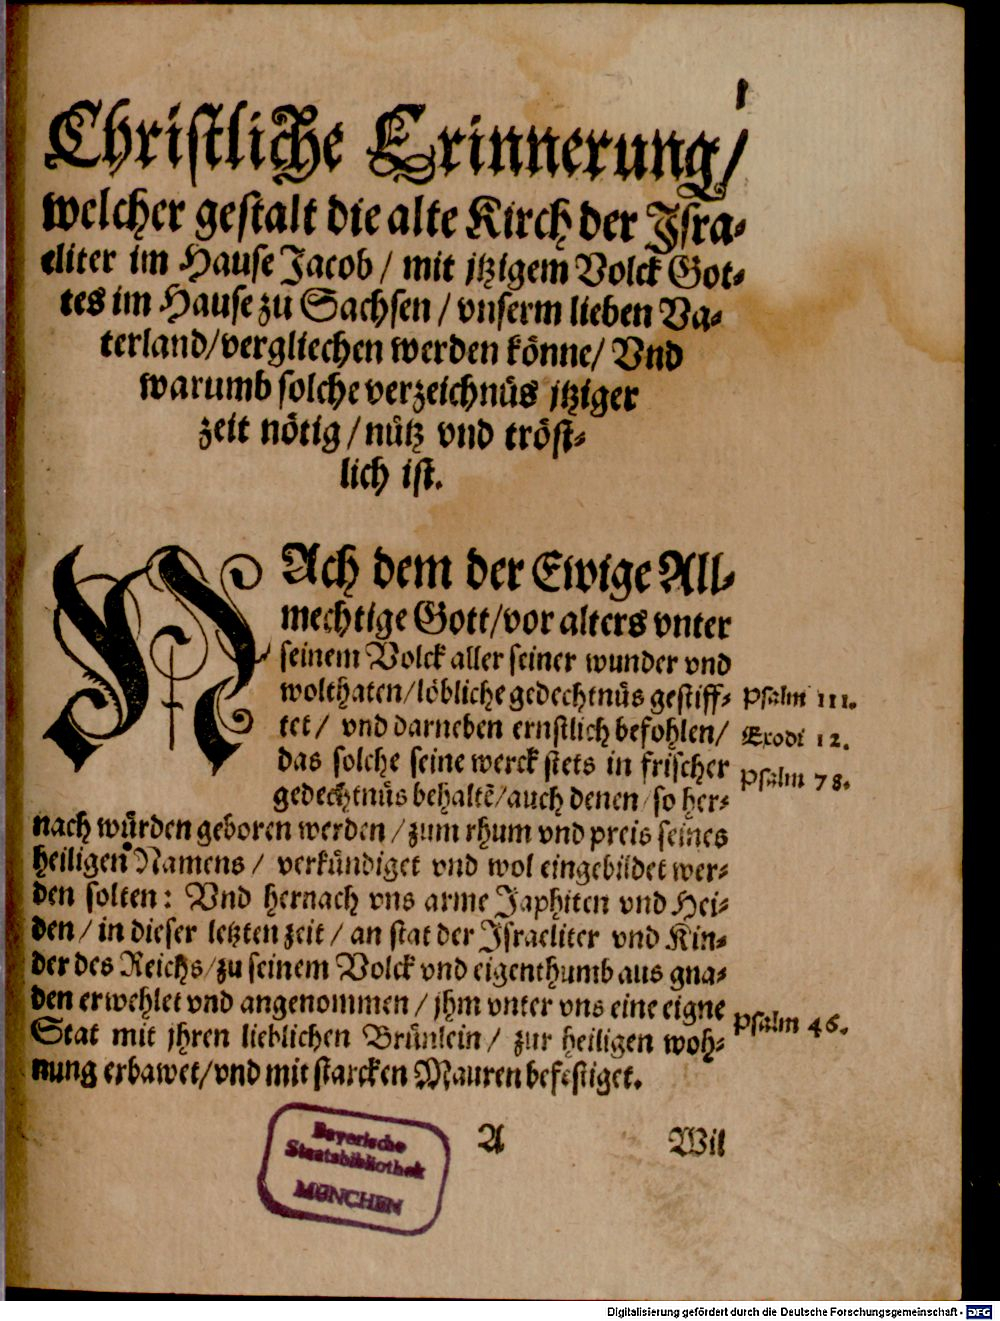 1
Christliche Erinnerung/
welcher gestalt die alte Kirch der Isra-
eliter im Hause Jacob / mit jtzigem Volck Got-
tes im Hause zu Sachsen / vnserm lieben Va-
terland/vergliechen werden könne/ Vnd
warumb solche verzeichnüs jtziger
zeit nötig / nütz vnd tröst-
lich ist.
NAch dem der Ewige All-
mechtige Gott/vor alters vnter
seinem Volck aller seiner wunder vnd
wolthaten/löbliche gedechtnüs gestiff-
tet/ vnd darneben ernstlich befohlen/
das solche seine werck stets in frischer
gedechtnüs behaltē/auch denen/so her-
nach würden geboren werden / zum rhum vnd preis seines
heiligen Namens / verkündiget vnd wol eingebildet wer-
den solten: Vnd hernach vns arme Japhiten vnd Hei-
den / in dieser letzten zeit / an stat der Israeliter vnd Kin-
der des Reichs/zu seinem Volck vnd eigenthumb aus gna-
den erwehlet vnd angenommen / jhm vnter vns eine eigne
Stat mit jhren lieblichen Brünlein / zur heiligen woh-
nung erbawet/vnd mit starcken Mauren befestiget.
Psalm 111.
Exodi 12.
Psalm 78.
Psalm 46.
A
Wil
Bayerische
Staatsbibliothek
MÜNCHEN
Digitalisierung gefördert durch die Deutsche Forschungsgemeinschaft - DFG